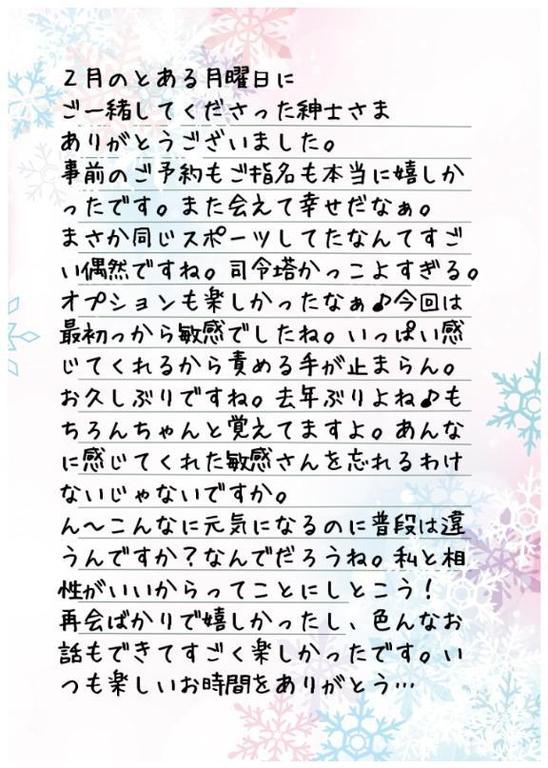 ２月のとある月曜日に
ご一緒してくださった紳士さま
ありがとうございました。
事前のご予約もご指名も本当に嬉しか
ったです。また会えて幸せだなぁ。
まさか同じスポーツしてたなんてすご
い偶然ですね。司令塔かっこよすぎる。
オプションも楽しかったなぁ♪今回は
最初っから敏感でしたね。いっぱい感
じてくれるから責める手が止まらん。
お久しぶりですね。去年ぶりよね♪も
ちろんちゃんと覚えてますよ。あんな
に感じてくれた敏感さんを忘れるわけ
ないじゃないですか。
ん～こんなに元気になるのに普段は違
うんですか？なんでだろうね。私と相
性がいいからってことにしとこう！
再会ばかりで嬉しかったし、色んなお
話もできてすごく楽しかったです。い
つも楽しいお時間をありがとう…